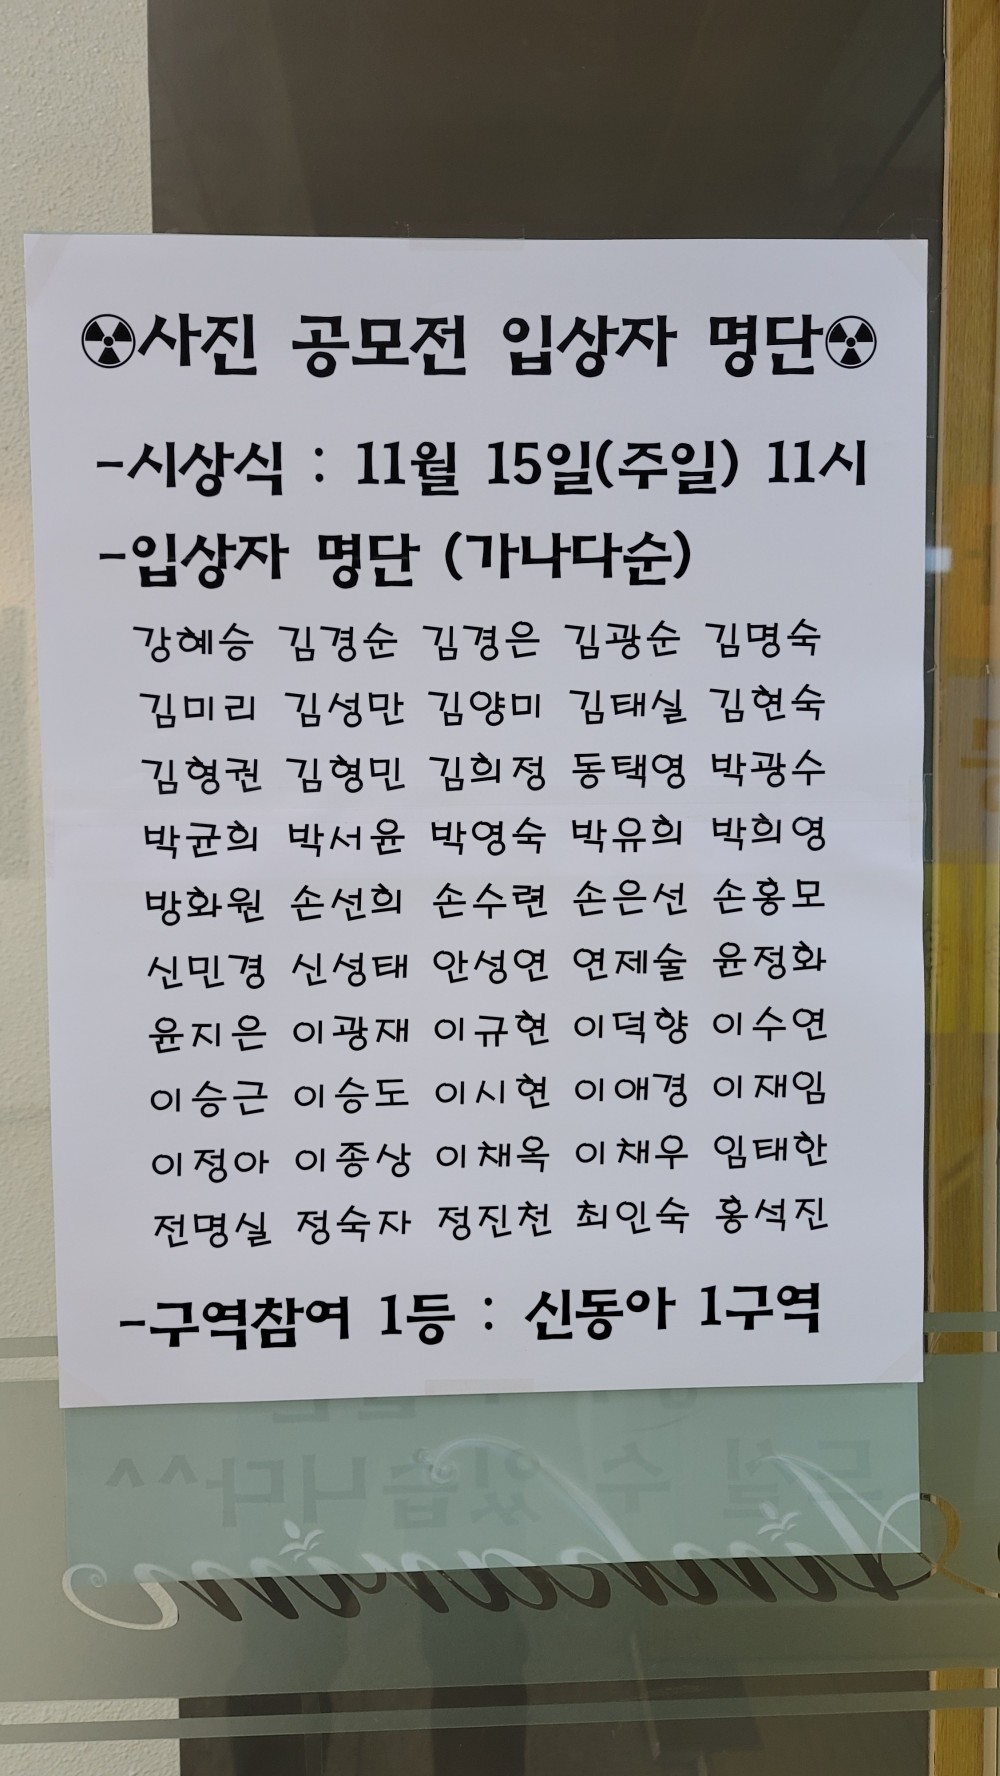 ☢사진 공모전 입상자 명단☢
-시상식 : 11월 15일(주일) 11시
-입상자 명단 (가나다순)
강혜승 김경순 김경은 김광순 김명숙
김미리 김성만 김양미 김태실 김현숙
김형권 김형민 김희정 동택영 박광수
박균희 박서윤 박영숙 박유희 박희영
방화원 손선희 손수련 손은선 손홍모
신민경 신성태 안성연 연제술 윤정화
윤지은 이광재 이규현 이덕향 이수연
이승근 이승도 이시현 이애경 이재임
이정아 이종상 이채옥 이채우 임태한
전명실 정숙자 정진천 최인숙 홍석진
-구역참여 1등 : 신동아 1구역
수 있습니다^^